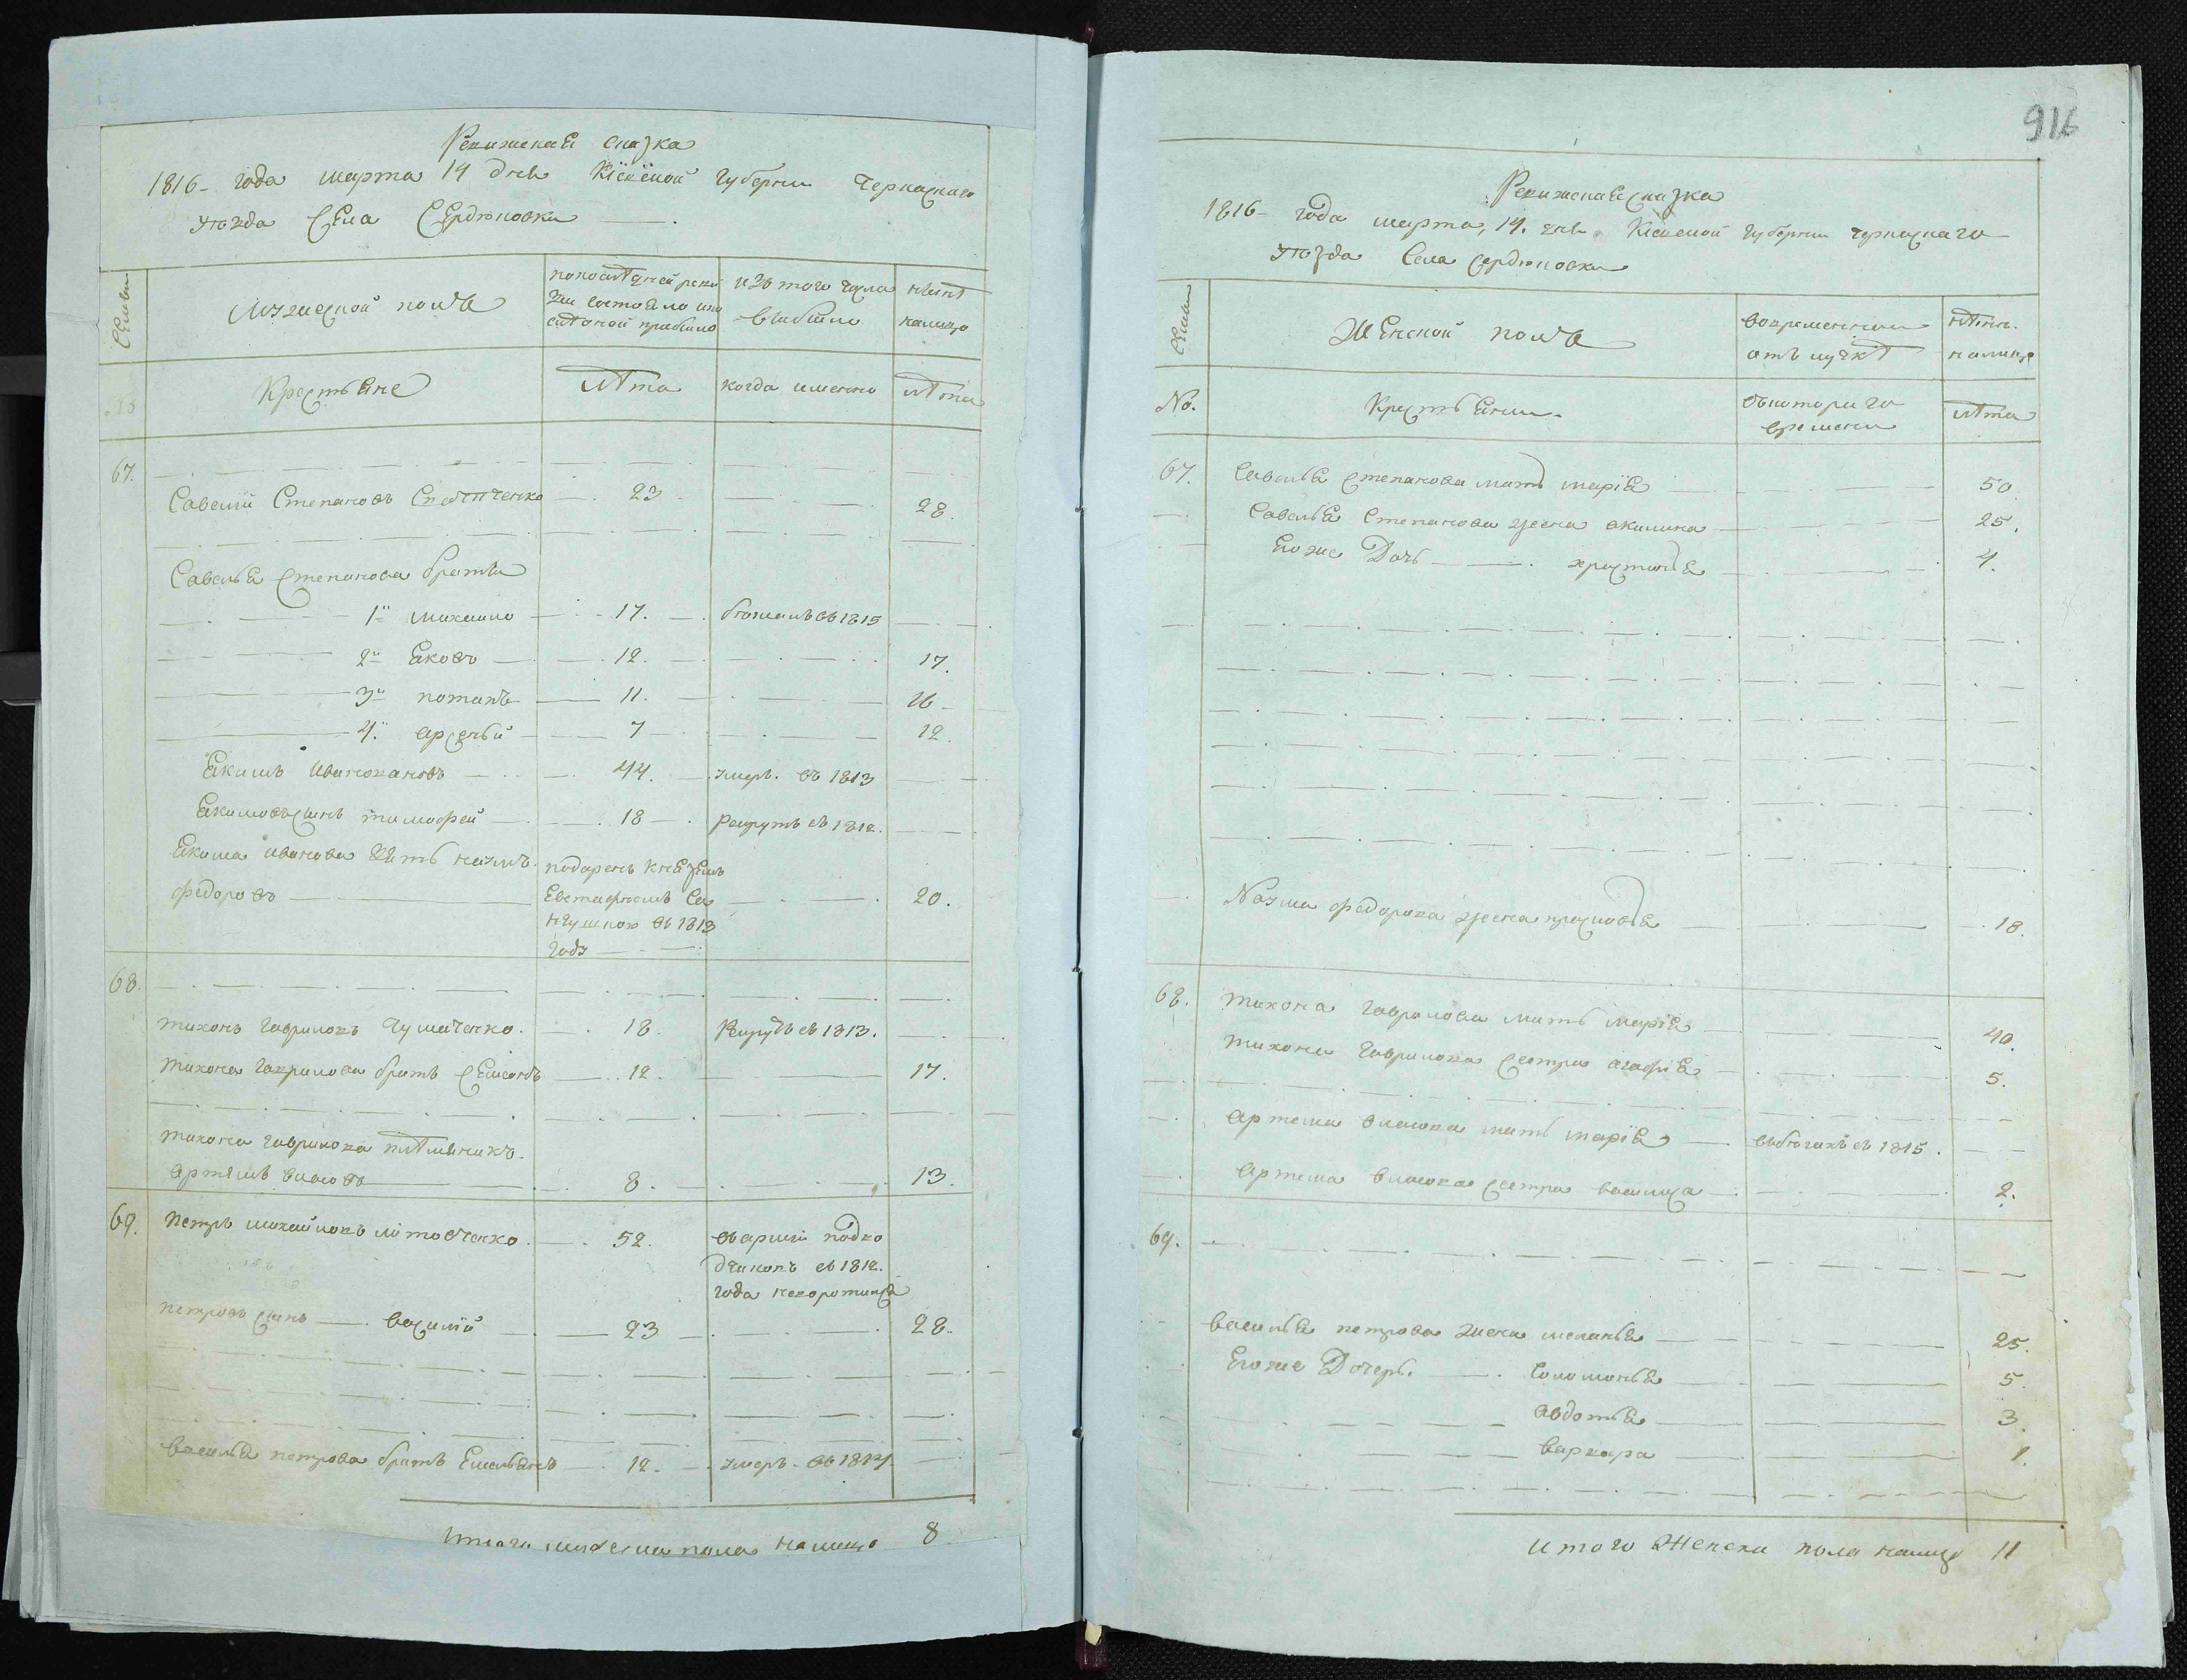 Ревижская сказка
1816- года марта 14 дня Кіевской губернии Черкаскаго
уѣзда Села Сердюковки
Семьи
Мужеской полъ
по последней реви
зіи состояло или
после оной прибыло
изъ того числа
выбыло
нынѣ
налицо
№
Крестьяне
лѣта
когда именно
лѣта
67.
Савелій Степановъ 23 28.
Савелья Степанова братья
1й Михаило 17. бежалъ въ 1815
2й Яковъ 12. 17.
3й потапъ 11. 16
4й арсеній 7 12.
Якимъ Ивановъ 44. умеръ. въ 1813
Якимовъ сынъ тимофей 18 рекрутъ въ 1812.
Якима иванова зять наумъ подаренъ Княземъ
федоровъ Евстафіемъ Са 20.
нгушкою въ 1813
году
68.
тихонъ гавриловъ Чумаченко. 18. Рекрутъ въ 1813.
тихона гаврилова братъ семенъ 12. 17.
тихона гаврилова племеникъ
артемъ власовъ 8. 13.
69. петръ михайловъ літовченко. 52. подво
дчиковъ въ 1812.
года
петровъ сынъ василій 23 28.
василья петрова братъ Емельянъ 12. умеръ въ 1814
Итого мужеска пола налицо 8
916
Ревижская сказка
1816- года марта, 14. дня Кіевской губернии черкаскаго
уѣзда Села сердюковки
Семьи
Женской полъ
во временной
отлучкѣ
нынѣ
налицо
No.
Крестьянки
съ котораго
времени
лѣта
67. Савелья степанова мать марія 50
Савелья Степанова жена акилина 25.
Его же Дочь христинья 4.
Наума федорова жена прасковья 18.
68. тихона гаврилова мать марія 40.
тихона гаврилова сестра агафія 5.
артема власова мать марія въ бѣгахъ съ 1815.
артема власова сестра василиса 2.
69.
василья петрова жена меланья 25.
Его же Дочерь. Соломонья 5.
авдотья 3
варвара 1.
итого Женска пола налицо 11